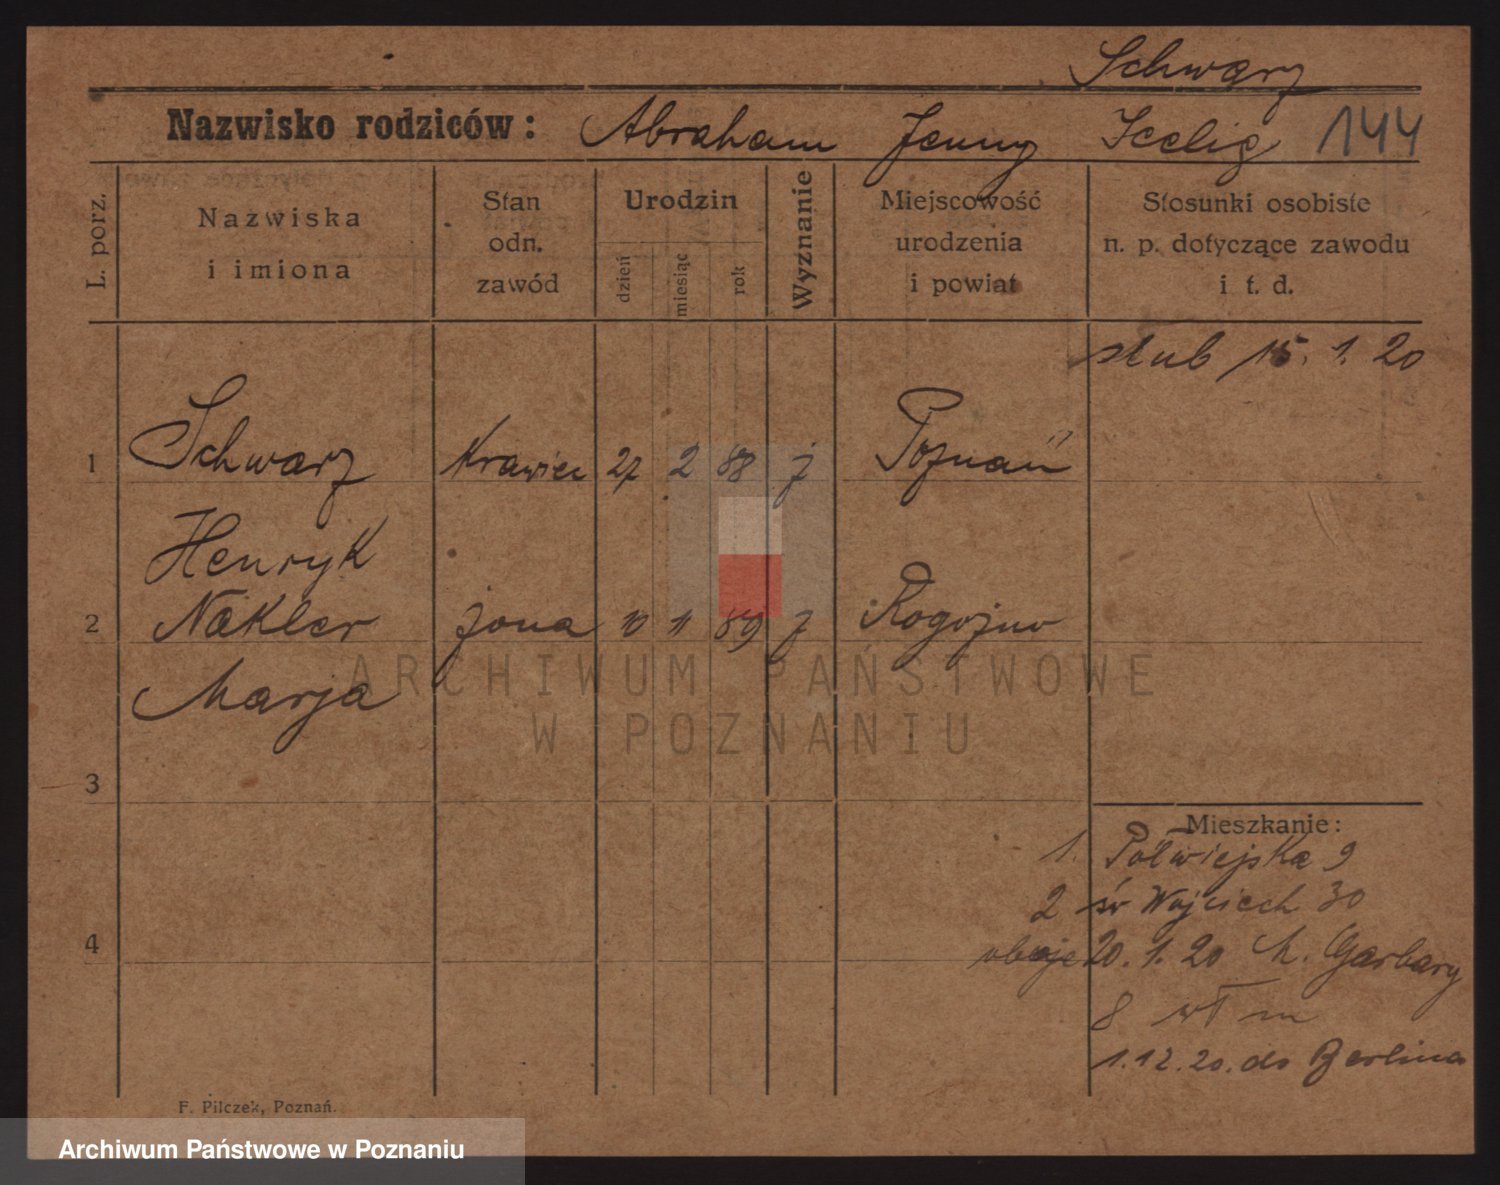 Schwarz
Nazwisko rodziców: Abraham Jenny Seelig 144
L. porz.
Nazwiska
i imiona
Stan
odn.
zawód
Urodzin
dzień
miesiąc
rok
Wyznanie
Miejscowość
urodzenia
i powiat
Stosunki osobiste
n. p. dotyczące zawodu
i t. d.
ślub 15. 1. 20
1 Schwarz Krawiec 27 2 88 j Poznań
Henryk
2 Nakler żona 10 11 89 j Rogoźno
Marja
3
4
Mieszkanie:
1. Półwiejska 9
2 św Wojciech 30
oboje 20. 1. 20 M. Garbary
8 wł m
1.12.20. do Berlina
F. Pilczek, Poznań.
ARCHIWUM PAŃSTWOWE
W POZNANIU
Archiwum Państwowe w Poznaniu